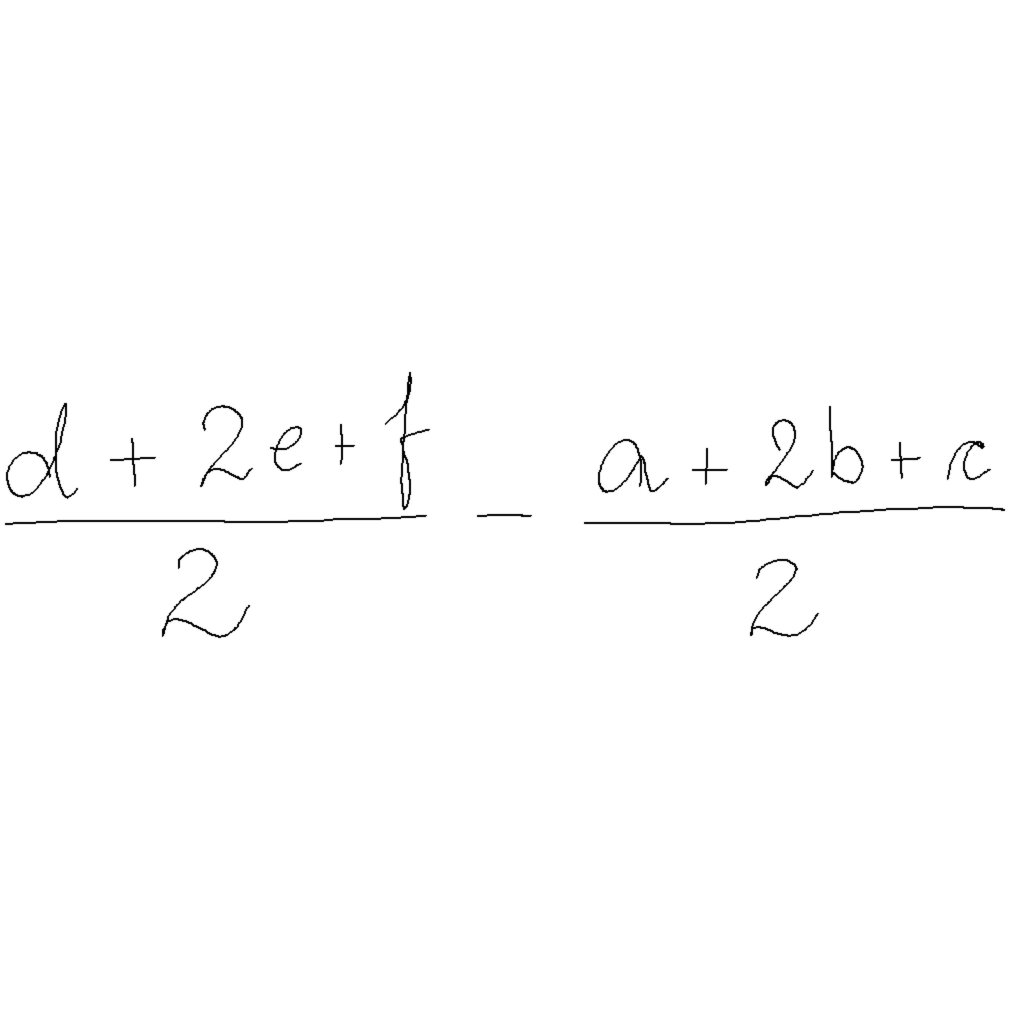 \frac{d + 2e + f}{2} - \frac{a + 2b + c}{2}